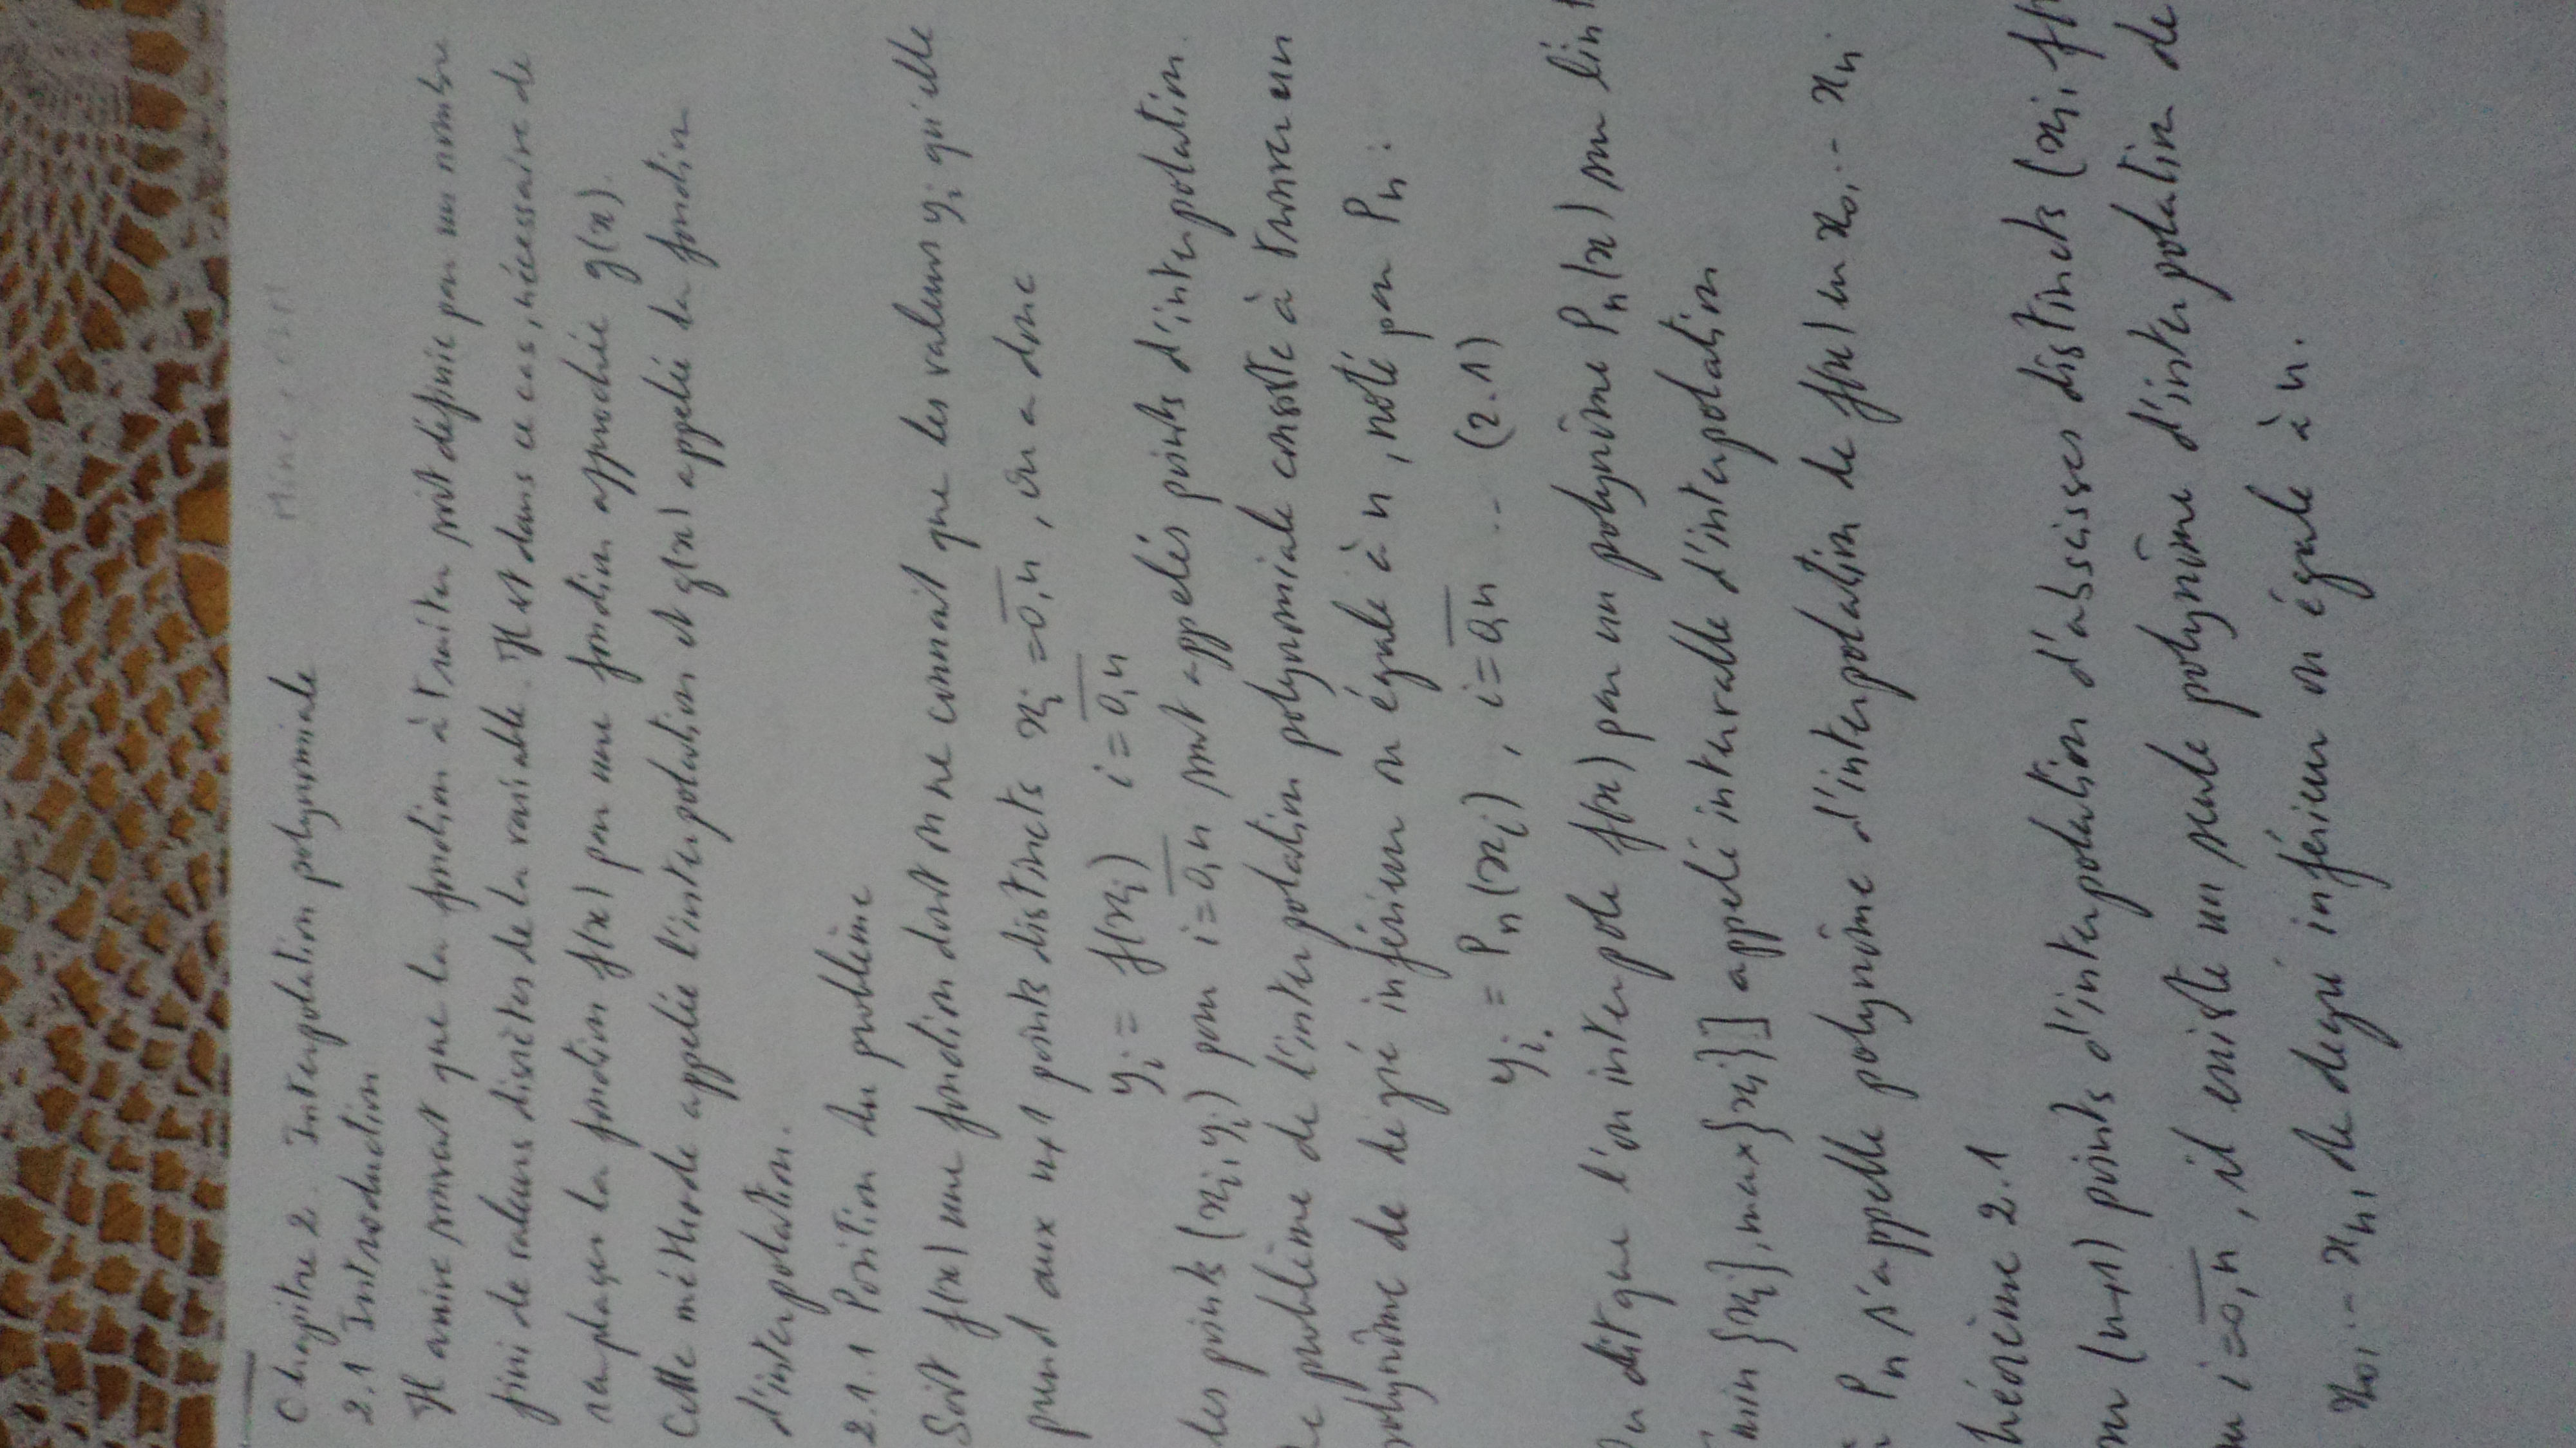 Chapitre 2. Interpolation polynomiale
2.1 Introduction
Il arrive souvent que la fonction à traiter soit définie par un nombre
fini de valeurs discrètes de la variable. Il est dans ce cas, nécessaire de
remplacer la fonction f(x) par une fonction approchée g(x).
Cette méthode appelée l'interpolation et g(x) appelée la fonction
d'interpolation.
2.1.1 Position du problème
Soit f(x) une fonction dont on ne connait que les valeurs yi qu'elle
prend aux n+1 points distincts xi =0,n, on a donc
yi = f(xi) i=0,n
les points (xi, yi) pour i=0,n sont appelés points d'interpolation.
e problème de l'interpolation polynomiale consiste à trouver un
polynôme de degré inférieur ou égale à n, noté par Pn:
yi = Pn(xi), i=0,n ... (2.1)
n dit que l'on interpole f(x) par un polynôme Pn(x) sur l'int
min{xi}, max{xi}] appelé intervalle d'interpolation
Pn s'appelle polynôme d'interpolation de f(x) en x0,... xn.
héorème 2.1
(n+1) points d'interpolation d'abscisses distincts (xi, f(
i=0,n, il existe un seule polynôme d'interpolation de
x0,... xn, de degré inférieur ou égale à n.